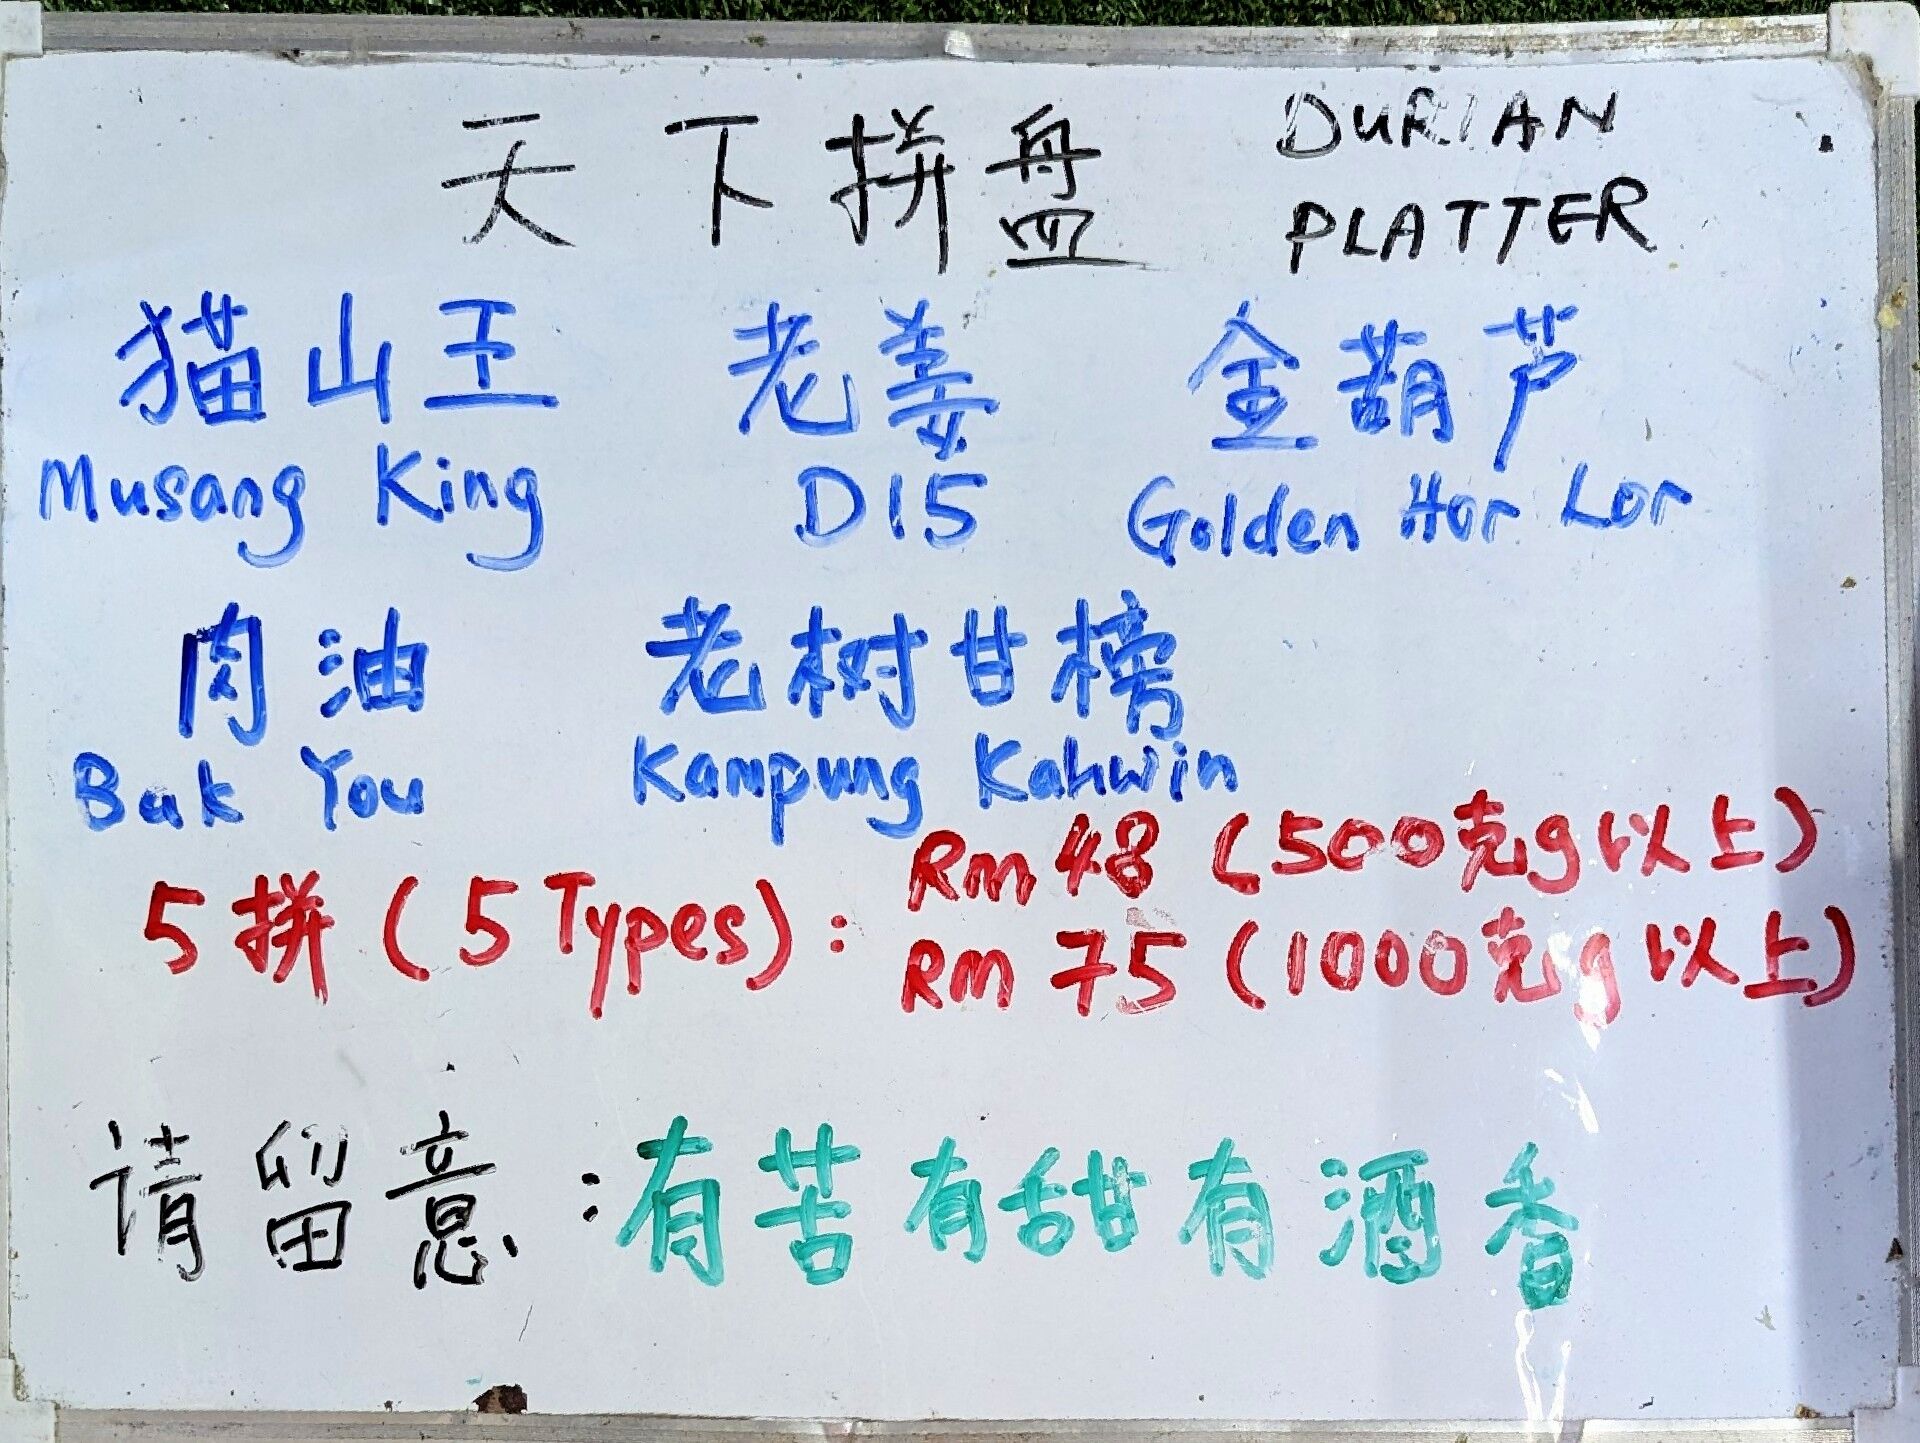 天下拼盘 DURIAN PLATTER
猫山王 老姜 金葫芦
Musang King D15 Golden Hor Lor
肉油 老树甘榜
Bak You Kampung Kahwin
5拼(5 Types): Rm 48 (500克g以上)
Rm 75 (1000克g以上)
请留意:有苦有甜有酒香